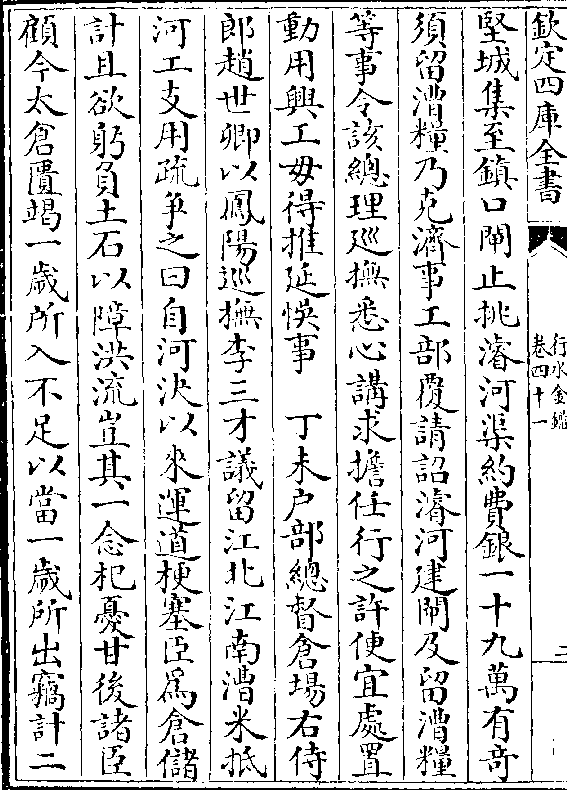 欽定四庫全書
行水金鑑
卷四十一
二
堅城集至鎮口閘止挑濬河渠約費銀一十九萬有竒
須留漕糧乃克濟事工部覆請詔濬河建閘及留漕糧
等事令該總理巡撫悉心講求擔任行之許便宜處置
動用興工毋得推延悞事　丁未户部總督倉場右侍
郎趙世卿以鳳陽巡撫李三才議留江北江南漕米抵
河工支用疏爭之曰自河決以來運道梗塞臣爲倉儲
計且欲躬負土石以障洪流豈其一念杞憂甘後諸臣
顧今太倉匱竭一歲所入不足以當一歲所出竊計二